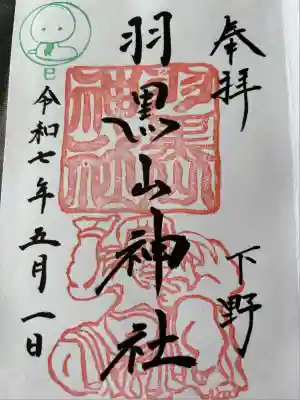 奉拝
下野
羽黒山神社
令和七年五月一日